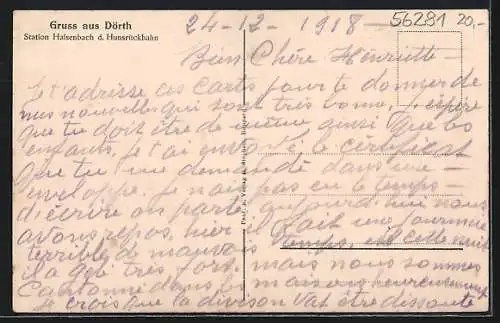 Gruss aus Dörth
Station Halsenbach d. Hunsrückbahn
24-12-1918-
56281 20,-
Bien Chère Henriette-
Je t'adresse ces carts pour te donner de
mes nouvelles qui sont très bonne, j'espère
que tu doit être de même ainsi que les
enfants. Je t'ai envoyé le certificat
que tu me demande dans une
enveloppe. Je nais pas eu le temps-
d'écrire on parte aujourd'hui nous
avons repos, hier il fait une journée
terrible de mauvais temps, et cette nuit
il a gelé très fort mais nous sommes
Cantonné dans les maisons heureusement
Je crois que la divison vat être dissoute